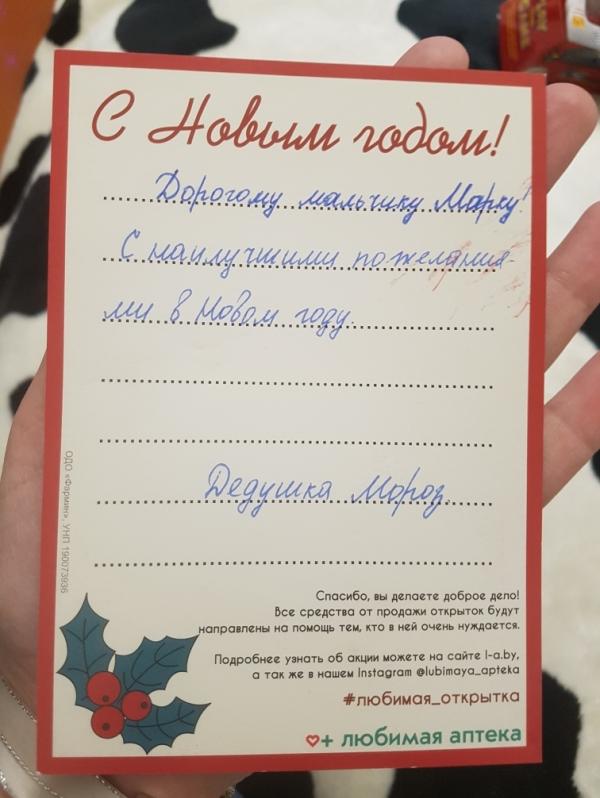 С Новым годом!
Дорогому мальчику Марку!
С наилучшими пожелания-
ми в Новом году.
Дедушка Мороз.
ОДО «Фармин», УНП 190073936
Спасибо, вы делаете доброе дело!
Все средства от продажи открыток будут
направлены на помощь тем, кто в ней очень нуждается.
Подробнее узнать об акции можете на сайте l-a.by,
а так же в нашем Instagram @lubimaya_apteka
#любимая_открытка
любимая аптека